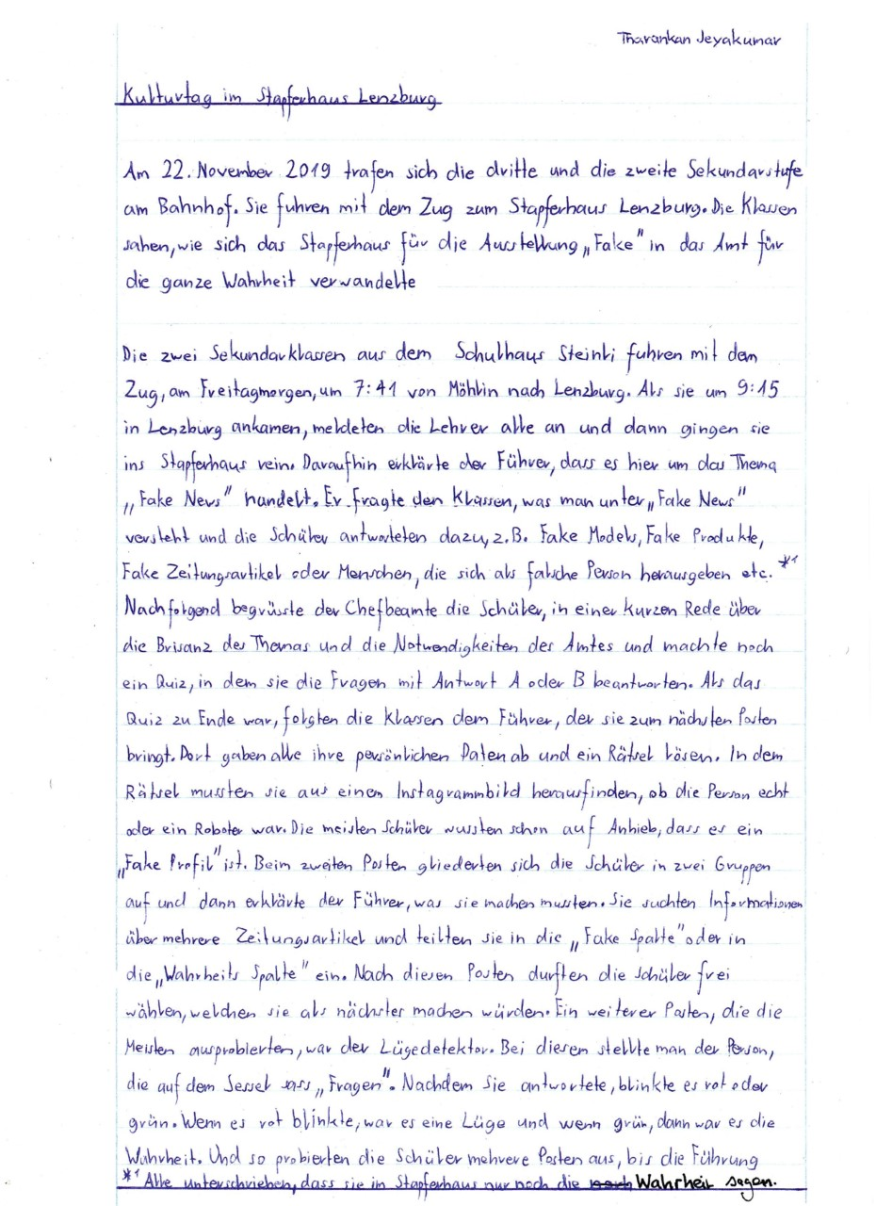 Tharankan Jeyakumar
Kulturtag im Stapferhaus Lenzburg
Am 22. November 2019 trafen sich die dritte und die zweite Sekundarstufe
am Bahnhof. Sie fuhren mit dem Zug zum Stapferhaus Lenzburg. Die Klassen
sahen, wie sich das Stapferhaus für die Ausstellung „Fake" in das Amt für
die ganze Wahrheit verwandelte
Die zwei Sekundarklassen aus dem Schulhaus Steinli fuhren mit dem
Zug, am Freitagmorgen, um 7:41 von Möhlin nach Lenzburg. Als sie um 9:15
in Lenzburg ankamen, meldeten die Lehrer alle an und dann gingen sie
ins Stapferhaus rein. Daraufhin erklärte der Führer, dass es hier um das Thema
„Fake News" handelt. Er fragte den Klassen, was man unter „Fake News"
versteht und die Schüler antworteten dazu, z.B. Fake Models, Fake Produkte,
Fake Zeitungsartikel oder Menschen, die sich als falsche Person herausgeben etc. *1
Nachfolgend begrüsste der Chefbeamte die Schüler, in einer kurzen Rede über
die Brisanz des Themas und die Notwendigkeiten des Amtes und machte noch
ein Quiz, in dem sie die Fragen mit Antwort A oder B beantworten. Als das
Quiz zu Ende war, folgten die Klassen dem Führer, der sie zum nächsten Posten
bringt. Dort gaben alle ihre persönlichen Daten ab und ein Rätsel lösen. In dem
Rätsel mussten sie aus einen Instagrammbild herausfinden, ob die Person echt
oder ein Roboter war. Die meisten Schüler wussten schon auf Anhieb, dass es ein
„Fake Profil" ist. Beim zweiten Posten gliederten sich die Schüler in zwei Gruppen
auf und dann erklärte der Führer, was sie machen mussten. Sie suchten Informationen
über mehrere Zeitungsartikel und teilten sie in die „Fake Spalte" oder in
die „Wahrheits Spalte" ein. Nach diesen Posten durften die Schüler frei
wählen, welchen sie als nächster machen würden. Ein weiterer Posten, die die
Meisten ausprobierten, war der Lügedetektor. Bei diesen stellte man der Person,
die auf dem Sessel sass „Fragen". Nachdem Sie antwortete, blinkte es rot oder
grün. Wenn es rot blinkte, war es eine Lüge und wenn grün, dann war es die
Wahrheit. Und so probierten die Schüler mehrere Posten aus, bis die Führung
*1 Alle unterschrieben, dass sie in Stapferhaus nur noch die Wahrheit sagen.